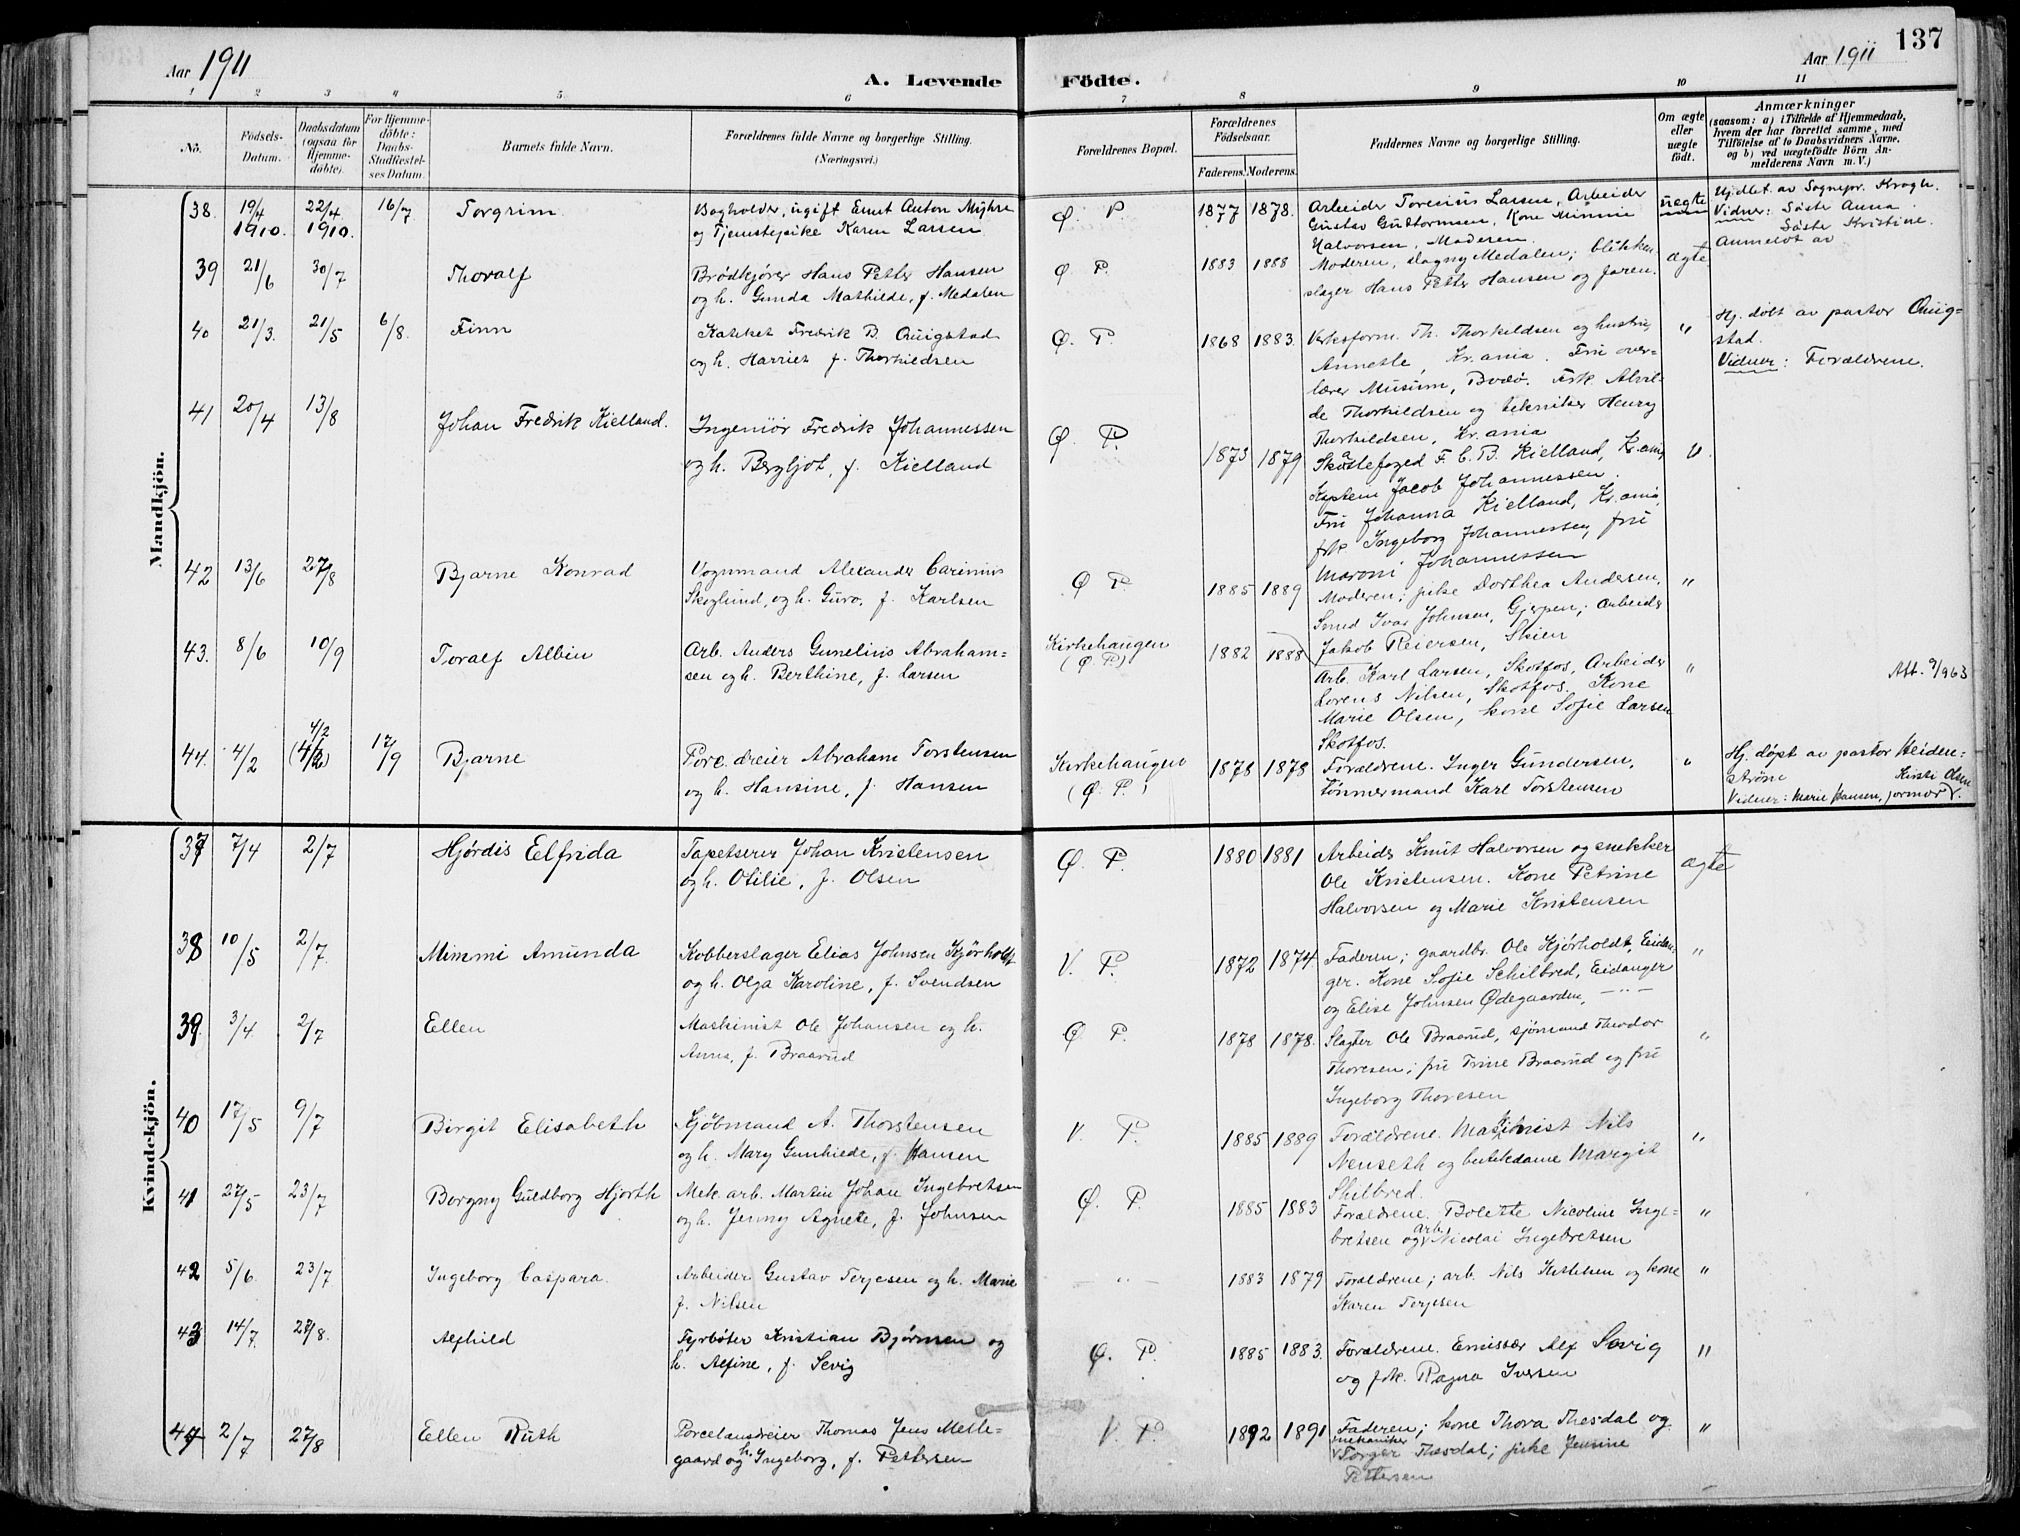 Aar 1911
A. Levende Födte.
Aar 1911
137
1 2 3 4 5 6 7 8 9 10 11
No.
Födsels-Datum.
Daabsdatum (ogsaa for Hjemme-döbte).
For Hjemme-döbte: Daabs-Stadfæstel-ses Datum.
Barnets fulde Navn.
Forældrenes fulde Navne og borgerlige Stilling. (Næringsvei.)
Forældrenes Bopæl.
Forældrenes Födselsaar.
Faderens. Moderens.
Faddernes Navne og borgerlige Stilling.
Om ægte eller uægte födt.
Anmærkninger
(saasom: a) i Tilfælde af Hjemmedaab, hvem der har forrettet samme, med Tilföielse af to Daabsvidners Navne, og b) ved uægtefödte Börn An-melderens Navn m. V.)
Mandkjön.
38. 19/4 1910. 22/4 1910. 16/7 Torgrim Bogholder, ugift Ernst Anton Myhre
og Tjenstepike Karen Larsen Ø. P. 1877 1878. Arbeider Torenius Larsen, Arbeider
Gustav Guttormsen, Kone Minnie
Halvorsen, Moderen. uægte Hj.dbt. av Sognepr. Krogh.
Vidner: Søstr Anna
Søster Kristine.
Anmeldt av
39 21/6 30/7 Thoralf Brödkjører Hans Petter Hansen
og h. Gunda Mathilde, f. Medalen Ø. P. 1883 1888 Moderen, Magny Medalen; Blikken
slager Hans Petter Hansen og faren. ægte
40 21/3. 21/5 6/8. Finn Kateket Fredrik B. Quigstad
og h. Harriet f. Thorkildsen Ø. P. 1868 1883. Verksform. Th. Thorkildsen og hustru
Annette, Kr.ania. Fru over-
lærer Musum, Bodö. Frk. Alvil-
de Thorkildsen og tekniker Henry
Thorkildsen, Kr.ania " Hj. döbt av pastor Quig-
stad.
Vidner: Forældrene.
41 20/4 13/8 Johan Fredrik Kielland. Ingeniør Fredrik Johannessen
og h. Bergljot, f. Kielland Ø. P. 1873 1879 Skattefoged F. C. B. Kielland, Kr.ania
Kaptein Jacob Johannessen.
Fru Johanna Kielland, Kr.ania,
frk. Ingeborg Johannessen, fru
Maroni Johannessen "
42 13/6 27/8 Bjarne Konrad Vognmand Alexander Carinius
Skoglund, og h. Guro, f. Karlsen Ø P. 1885 1889 Moderen; pike Dorthea Andersen,
Smed Ivar Johnsen, Gjerpen; arbeider
Jakob Reiersen, Skien "
43. 8/6 10/9 Toralf Albin Arb. Anders Gunelius Abraham=
sen og h. Berthine, f. Larsen Kirkehaugen
(Ø. P.) 1882 1888 Arb. Karl Larsen, Skotfos, Arbeider
Lorens Nilsen, Skotfos. Kone
Marie Olsen, kone Sofie Larsen
Skotfos. " Att. 9/963
44. 4/2 4/2 (4/2) 17/9 Bjarne Porc. dreier Abraham Torstensen
og h. Hansine, f. Hansen Kirkehaugen
(Ø. P.) 1878 1878 Forældrene. Inger Gundersen,
Tömmermand Karl Torstensen " Hj. döpt av pastor Heiden=
strøm Kirsti Olsen
Vidner: Marie Hansen, jormor.
Kvindekjön.
37 7/4 2/7 Hjørdis Elfrida Tapetserer Johan Kristensen
og h. Otilie, f. Olsen Ø. P. 1880 1881 Arbeider Knut Halvorsen og snekker
Ole Kristensen. Kone Petrine
Halvorsen og Marie Kristensen ægte
38 10/5 2/7. Mimmi Amunda Kobberslager Elias Johnsen Kjörholt
og h. Olga Karoline, f. Svendsen V. P. 1872 1874. Faderen; gaardbr. Ole Kjörholdt, Eidan-
ger. Kone Sofie Schilbred, Eidanger
og Elise Johnsen Ødegaarden, — " — "
39. 3/4. 2/7 Ellen Maskinist Ole Johansen og h.
Anna, f. Braarud Ø P. 1878 1878. Slagter Ole Braarud, sjömand Theodor
Thoresen; fru Trine Braarud og fru
Ingeborg Thoresen "
40 17/5 9/7 Birgit Elisabeth Kjöbmand A. Thorstensen
og h. Mary Gunhilde, f. Hansen V. P. 1885 1889 Forældrene. Maskinist Nils
Nenseth og butikdame Margit
Skilbred. "
41 27/5 23/7 Borgny Guldborg Hjorth Mek. arb. Martin Johan Ingebretsen
og h. Jenny Agnete, f. Johnsen Ø. P. 1885 1883 Forældrene. Bolette Nicoline Inge-
bretsen og arb. Nicolai Ingebretsen "
42 5/6 23/7 Ingeborg Caspara. Arbeider Gustav Terjesen og h. Marie
f. Nilsen — " — 1883 1879 Forældrene; arb. Nils Kittilsen og kone
Karen Terjesen "
43 14/7. 27/8. Alfhild Fyrbøter Kristian Bjørnsen og
h. Alfine, f. Sevig Ø. P. 1885 1883. Forældrene. Emissær Alf Sevig
og frk. Ragna Iversen "
44 2/7 27/8 Ellen Ruth Porcelænsdreier Thomas Jens Melle-
gaard og h. Ingeborg, f. Pettersen V P. 1892 1891 Faderen; kone Thora Thesdal og
mekaniker Torger Thesdal; pike Jensine
Pettersen "